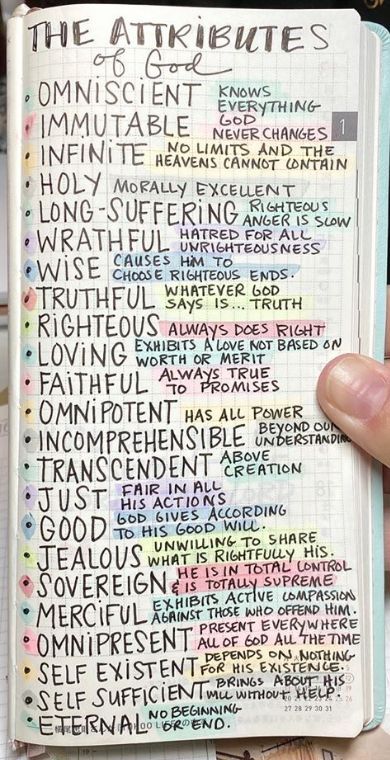 THE ATTRIBUTES
of God
OMNISCIENT KNOWS EVERYTHING
IMMUTABLE GOD NEVER CHANGES
1
INFINITE NO LIMITS AND THE HEAVENS CANNOT CONTAIN
HOLY MORALLY EXCELLENT
LONG-SUFFERING RIGHTEOUS ANGER IS SLOW
WRATHFUL HATRED FOR ALL UNRIGHTEOUSNESS
WISE CAUSES HIM TO CHOOSE RIGHTEOUS ENDS.
TRUTHFUL WHATEVER GOD SAYS IS... TRUTH
RIGHTEOUS ALWAYS DOES RIGHT
LOVING EXHIBITS A LOVE NOT BASED ON WORTH OR MERIT
FAITHFUL ALWAYS TRUE TO PROMISES
OMNIPOTENT HAS ALL POWER
INCOMPREHENSIBLE BEYOND OUR UNDERSTANDING
TRANSCENDENT ABOVE CREATION
JUST FAIR IN ALL HIS ACTIONS
GOOD GOD GIVES ACCORDING TO HIS GOOD WILL.
JEALOUS UNWILLING TO SHARE WHAT IS RIGHTFULLY HIS.
SOVEREIGN HE IS IN TOTAL CONTROL & IS TOTALLY SUPREME
MERCIFUL EXHIBITS ACTIVE COMPASSION AGAINST THOSE WHO OFFEND HIM.
OMNIPRESENT PRESENT EVERYWHERE ALL OF GOD ALL THE TIME
SELF EXISTENT DEPENDS ON NOTHING FOR HIS EXISTENCE.
SELF SUFFICIENT BRINGS ABOUT HIS WILL WITHOUT HELP.
ETERNAL NO BEGINNING OR END.
27 28 29 30 31